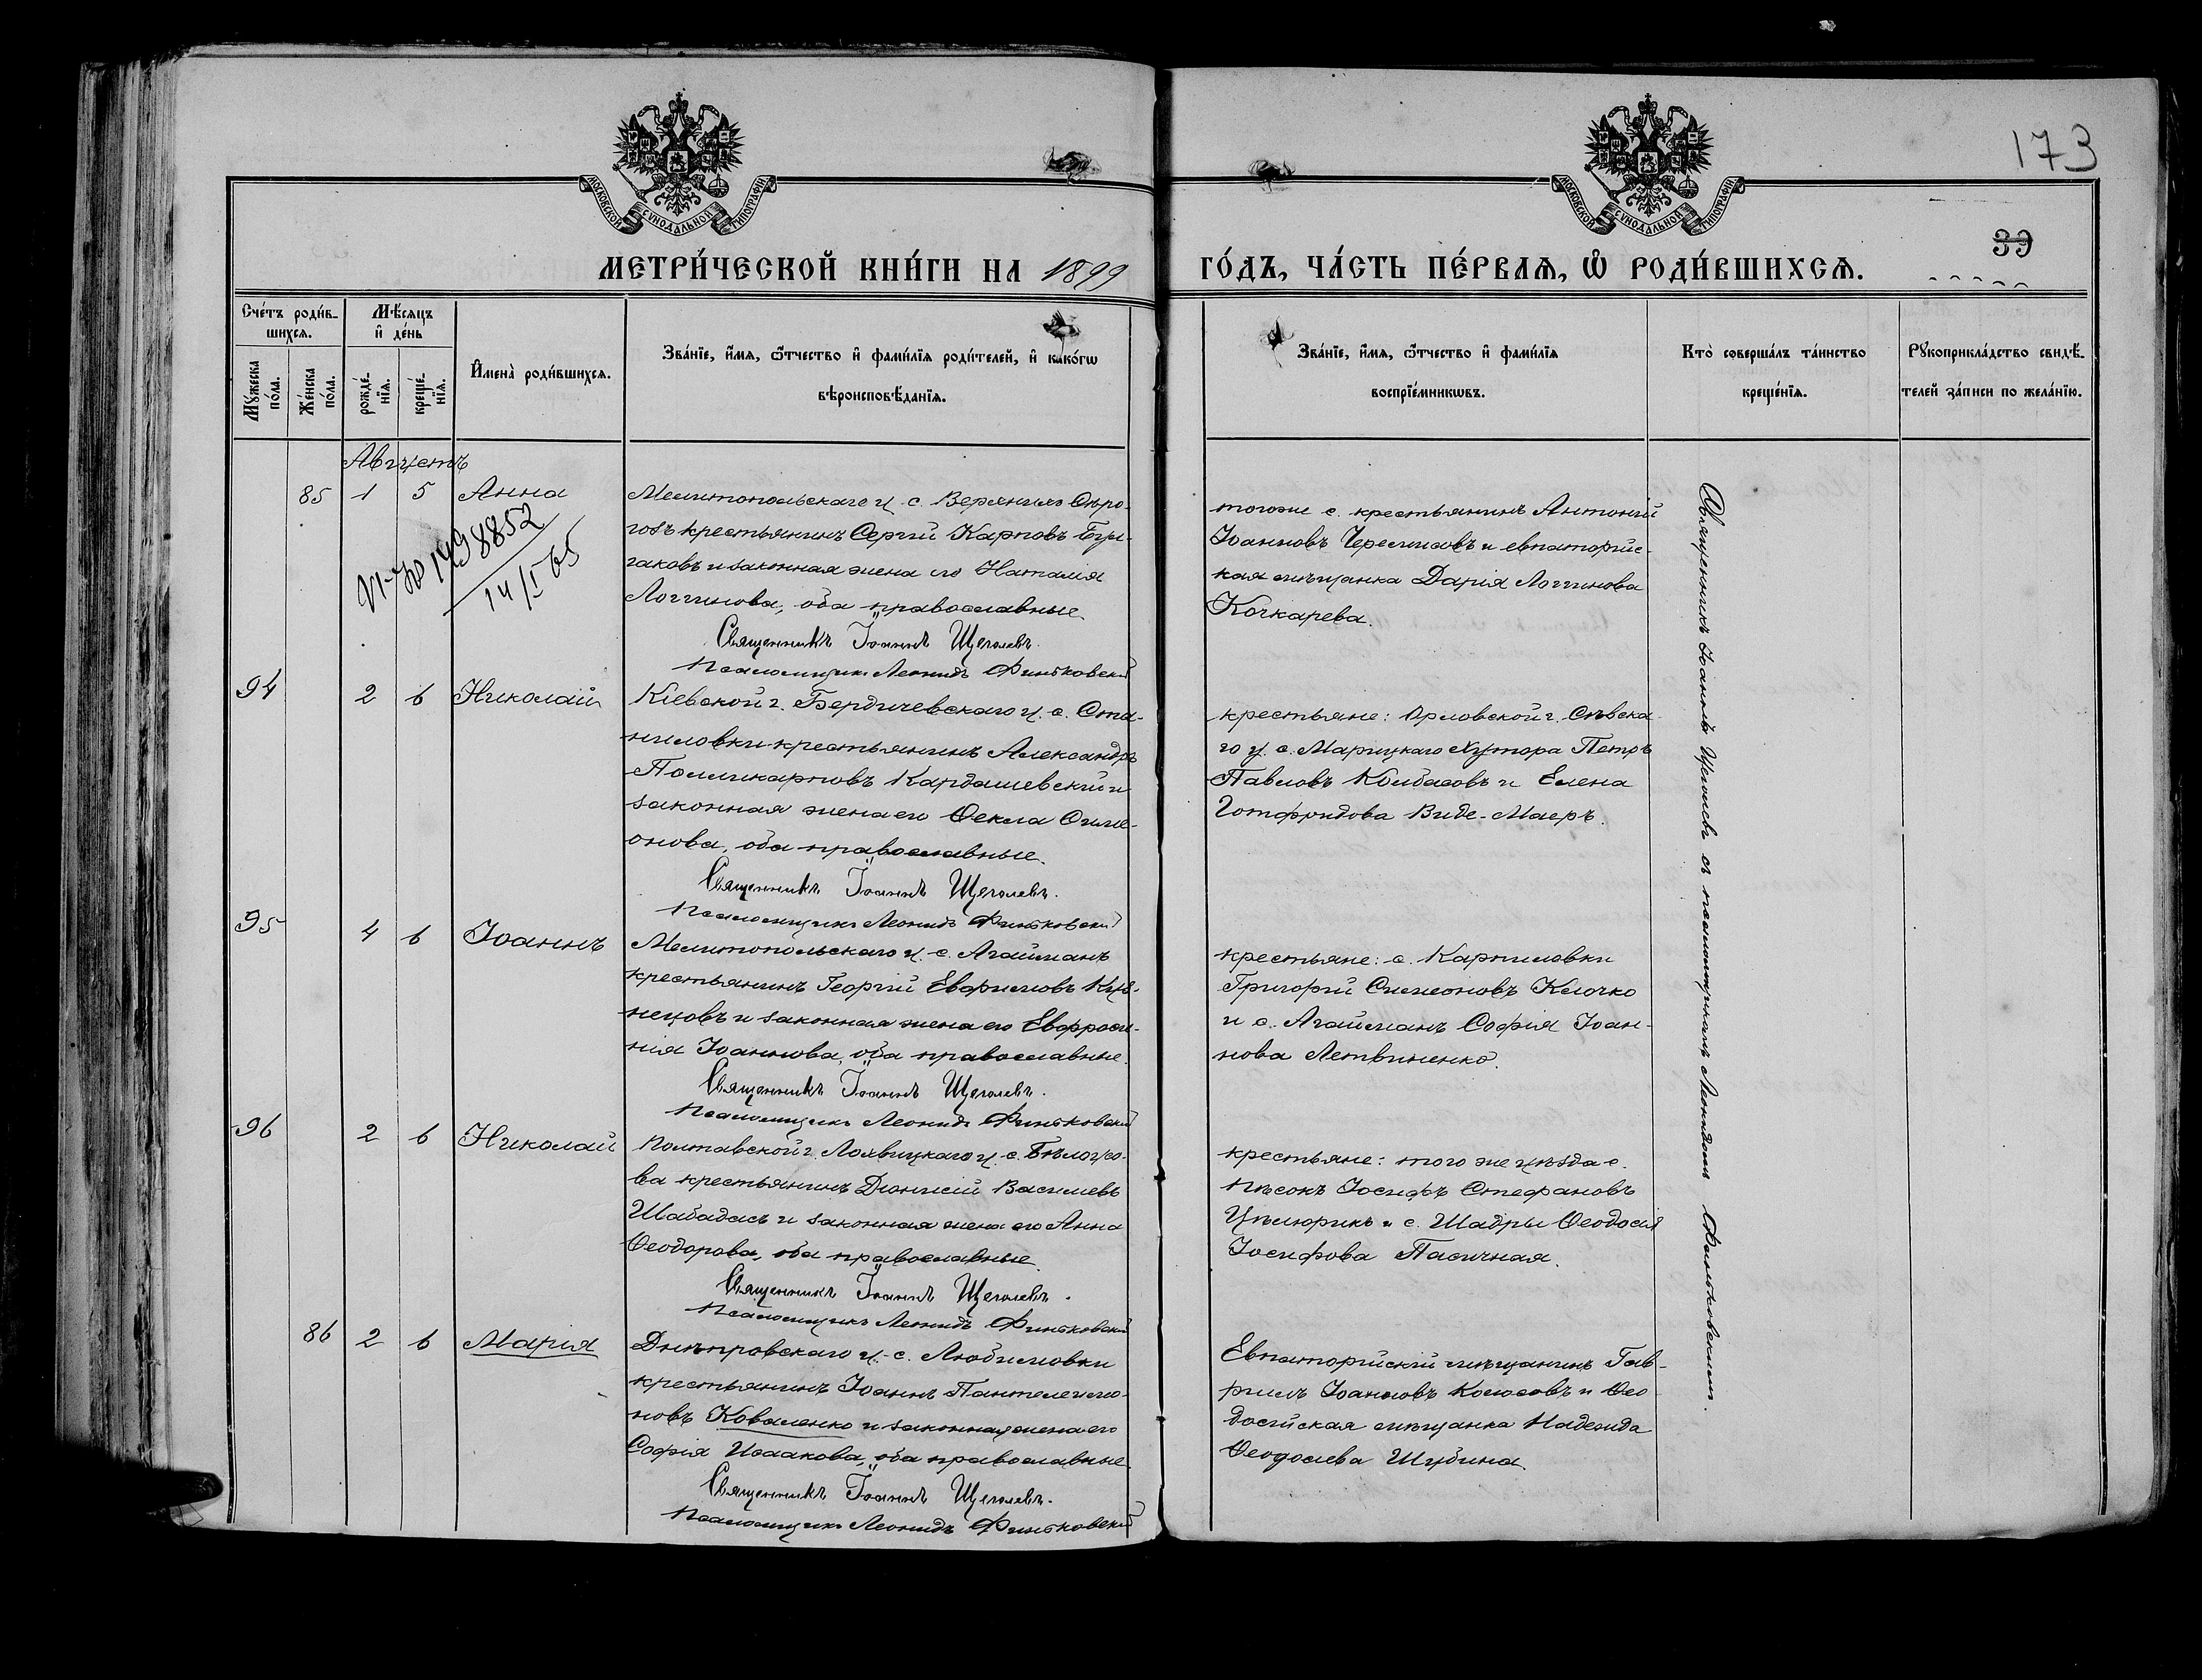 173
39
МОСКОВСКОЙ СѴНОДАЛЬНОЙ ТИПОГРАФІИ
МОСКОВСКОЙ СѴНОДАЛЬНОЙ ТИПОГРАФІИ
МЕТРИ́ЧЕСКОЙ КНИ́ГИ НА 1899 ГО́ДЪ, ЧА́СТЬ ПЕ́РВАЯ, Ѡ РОДИ́ВШИХСЯ.
Сче́тъ роди́в-
шихся.
Му́жеска по́ла.
Же́нска по́ла.
Мѣ́сяцъ и де́нь
рожде́-нїя.
креще́-нїя.
Имена̀ роди́вшихся.
Зва́нїе, и́мя, ѻ́тчество и фами́лїя роди́телей, и како́гѡ
вѣроисповѣ́данїя.
Зва́нїе, и́мя, ѻ́тчество и фами́лїя
воспрїе́мникѡвъ.
Кто̀ соверша́лъ та́инство
креще́нїя.
Рꙋкоприкла́дство свидѣ́-
телей за́писи по жела́нїю.
Августъ
85 1 5 Анна
Мелитопольскаго у. с. Верхнихъ Сѣро-
гозъ крестьянинъ Сергій Карповъ
и законная жена его Наталія
Логгинова, оба православные
Священникъ Іоаннъ Щеголевъ.
Псаломщикъ Леонидъ
тогоже с. крестьянинъ Антоній
Іоанновъ и евпаторійс-
кая мѣщанка Дарія Логгинова
Кочкарева.
1498852
14/I 65
94 2 6 Николай
Кіевской г. Бердичевскаго у. с. Ста-
ниловки крестьянинъ Александръ
Поликарповъ Кардашевскій и
законная жена его Ѳекла Симе-
онова, оба православные.
Священникъ Іоаннъ Щеголевъ.
Псаломщикъ Леонидъ
крестьяне: Орловской г. Сѣвска-
го у. с. Марицкаго Хутора Петръ
Павловъ Колбасовъ и Елена
Готфридова Виде-Маеръ.
95 4 6 Іоаннъ
Мелитопольскаго у. с. Агайманъ
крестьянинъ Георгій Евфимовъ Куз-
нецовъ и законная жена его Евфроси-
нія Іоаннова, оба православные.
Священникъ Іоаннъ Щеголевъ.
Псаломщикъ Леонидъ
крестьяне: с. Карпиловки
Григорій Симеоновъ Клочко
и с. Агайманъ Софія Іоан-
нова Летвиненко.
96 2 6 Николай
Полтавской г. Лохвицкаго у. с. Бѣлоусо-
ва крестьянинъ Діонисій Васильевъ
Шабадасъ и законная жена его Анна
Ѳеодорова, оба православные.
Священникъ Іоаннъ Щеголевъ.
Псаломщикъ Леонидъ
крестьяне: того же уѣзда с.
Пѣсокъ Іосифъ Стефановъ
Цѣлюрикъ и с. Шадры Ѳеодосія
Іосифова Пасичная.
86 2 6 Марія
Днѣпровскаго у. с. Любимовки
крестьянинъ Іоаннъ Пантелеимо-
новъ Коваленко и законная жена его
Софія Исаакова, оба православные.
Священникъ Іоаннъ Щеголевъ.
Псаломщикъ Леонидъ
Евпаторійскій мѣщанинъ Гав-
риилъ Іоанновъ и Ѳео-
досійская мѣщанка Надежда
Ѳеодосіева Шубина.
Священникъ Іоаннъ Щеголевъ съ псаломщикомъ Леонидомъ